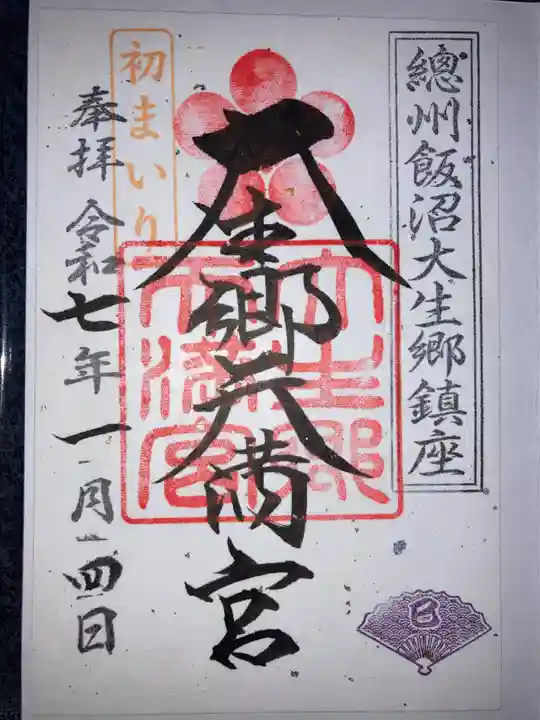 總州飯沼大生郷鎮座
大生郷天満宮
大生郷
天満宮
初まいり
奉拝 令和七年一月四日
巳